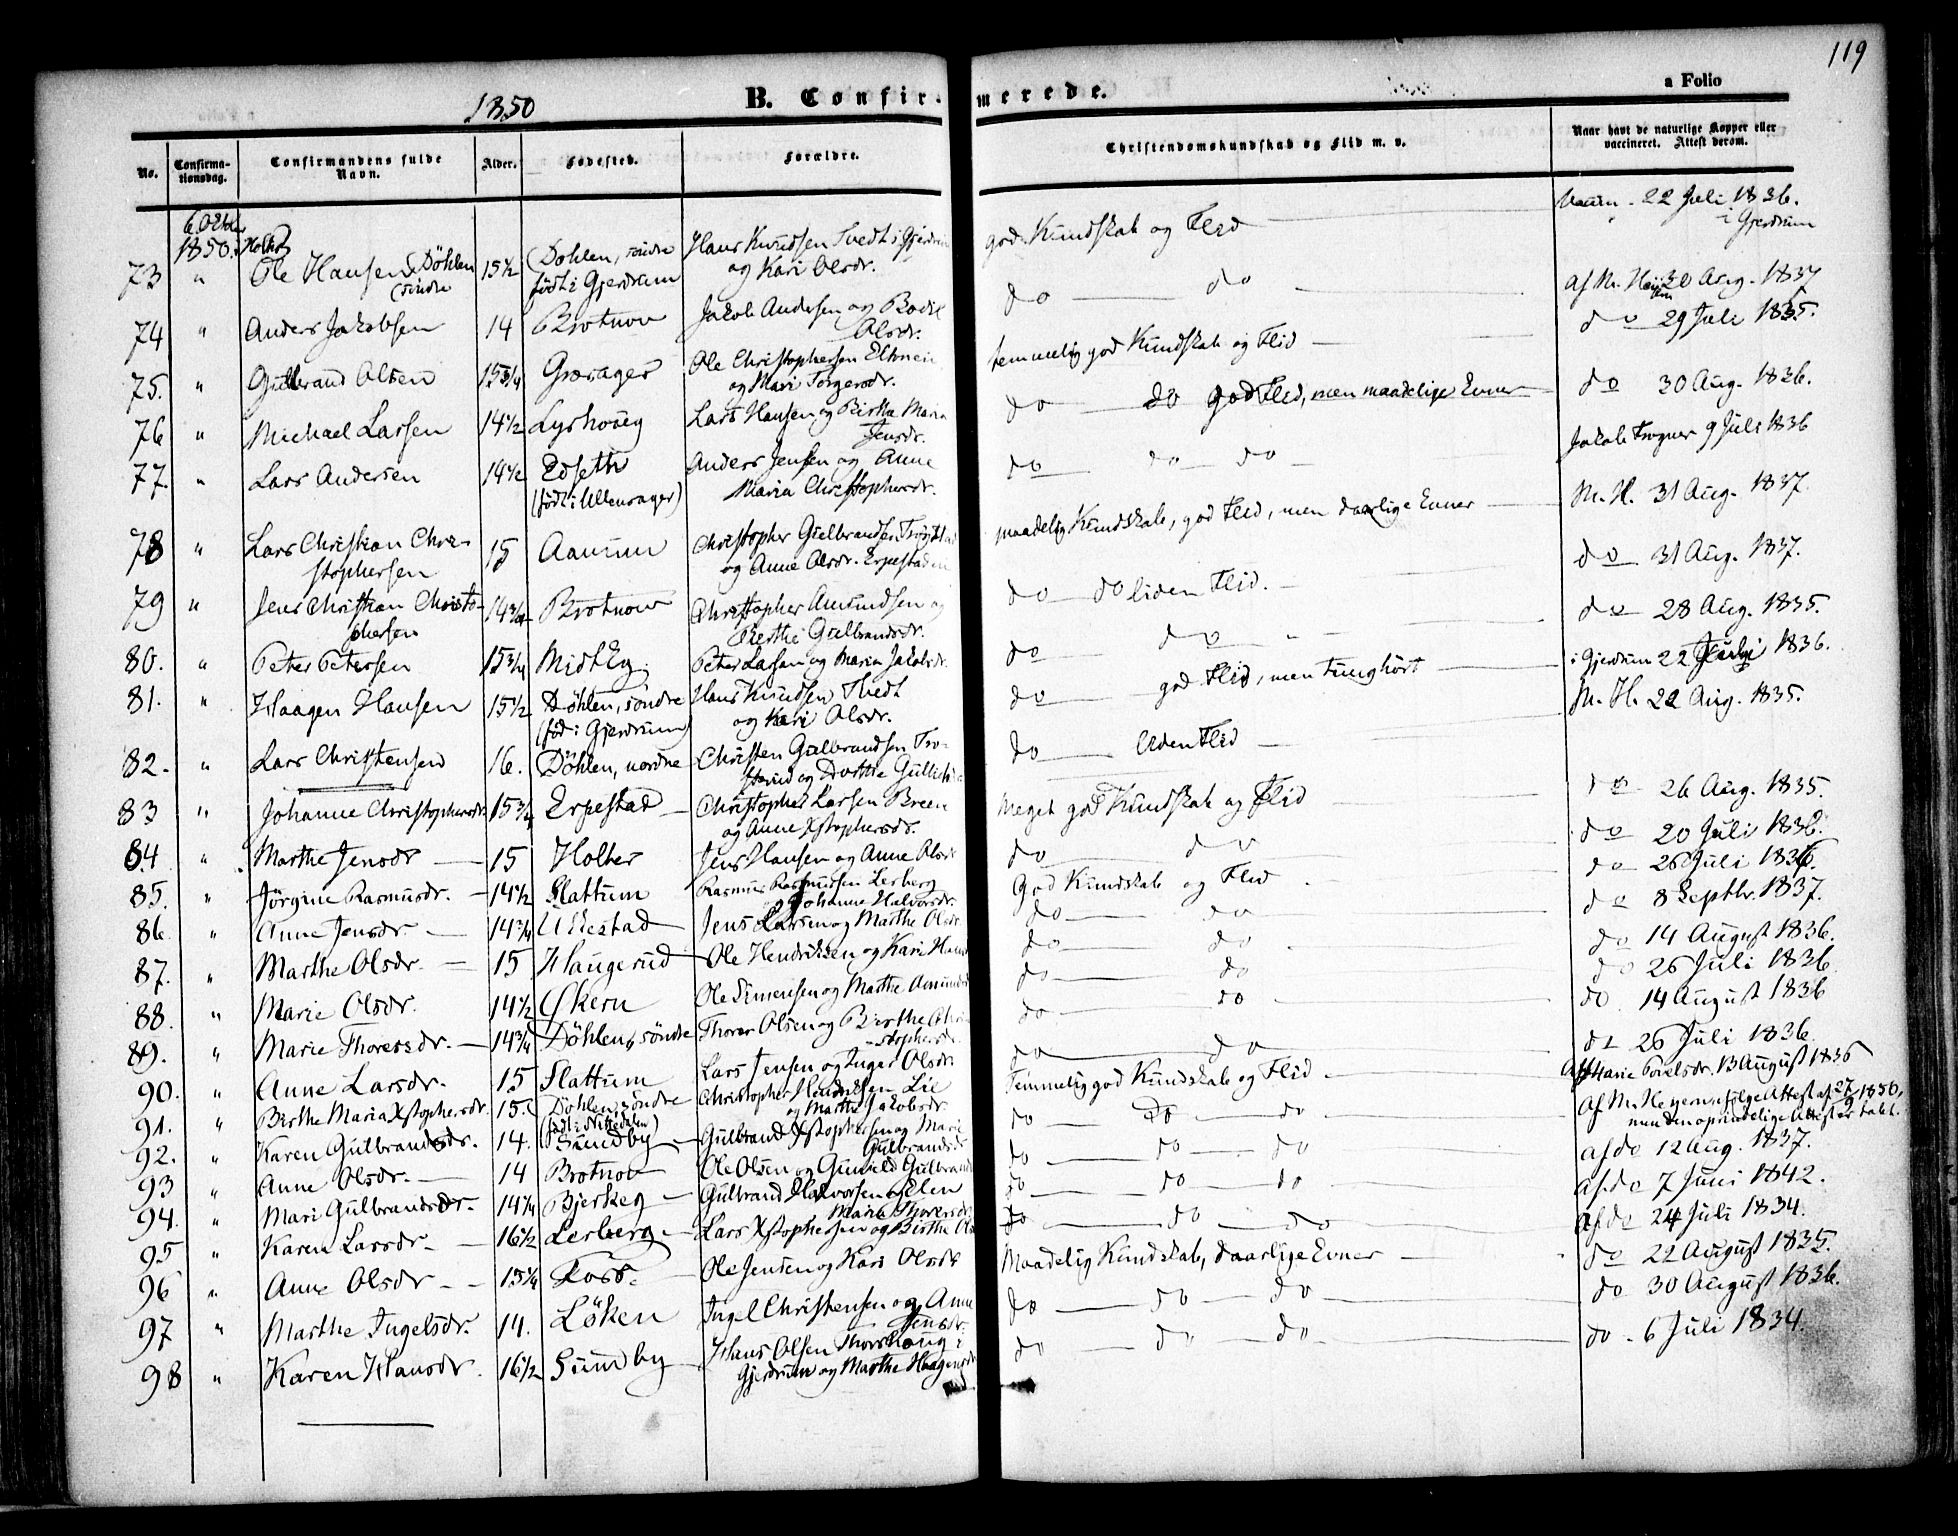 119
1850 B. Confirmerede. a Folio
No. Confirmationsdag. Confirmandens fulde Navn. Alder. Fødested. Forældre. Christendomskundskab og Flid m. v. Naar havt de naturlige Kopper eller vaccineret. Attest derom.
6. Octbr 1850. Holter
73 " Ole Hansen Döhlen söndre 15½ Döhlen, söndre födt i Gjerdrum Hans Knudsen Tvedt i Gjerdrum og Kari Olsdr. god Kundskab og Flid Vaccin. 22 Juli 1836. i Gjerdrum
74 " Anders Jakobsen 14 Brotnov Jakob Andersen og Bodil Olsdr. do do af M. Heyern 30 Aug. 1837
75. " Gulbrand Olsen 15¾ Græsager Ole Christophersen Elknei og Mari Torgersdr. temmelig god Kundskab og Flid do 29 Juli 1835.
76 " Michael Larsen 14½ Lyshoug Lars Hansen og Birthe Maria Jensdr. do do god Flid, men maadelige Evner do 30 Aug. 1836.
77. " Lars Andersen 14½ Edseth (födt i Ullensager) Anders Jensen og Anne Maria Christophersdr. do do do Jakob Frogner 9 Juli 1836
78 " Lars Christian Christophersen 15 Aamum Christopher Gulbrandsen og Anne Olsdr. Erpestad maadelig Kundskab, god Flid, men daarlige Evner M. H. 31 Aug. 1837.
79 " Jens Christian Christophersen 14¾ Brotnov Christopher Amundsen og Berthe Gulbrandsdr. do do liden Flid. do 31 Aug. 1837.
80. " Peter Petersen 15¾ Midt Eg. Peter Larsen og Maria Jakobsdr. do do " do 28 Aug. 1835.
81. " Haagen Hansen 15½ Döhlen, söndre (föd i Gjerdrum) Hans Knudsen Tvedt og Kari Olsdr. do god Flid, men tunghört i Gjerdrum 22 Juli 1836.
82. " Lars Christensen 16. Döhlen, nordre Christen Gulbrandsen og Dorthe do liden Flid M. H. 22 Aug. 1835.
83 " Johanne Christophersdr. 15¾ Erpestad Christopher Larsen Breen og Anne Xstophersdr. Meget god Kundskab og Flid do 26 Aug. 1835.
84. " Marthe Jensdr 15 Holter Jens Hansen og Anne Olsdr do do do 20 Juli 1836.
85. " Jörgine Rasmusdr. 14½ Slattum Rasmus Rasmussen Lerberg og Johanne Halvorsdr. God Kundskab og Flid do 26 Juli 1836.
86. " Anne Jensdr. 14¾ Ullestad Jens Larsen og Marthe Olsdr. do do do 8 Septbr. 1837.
87. " Marthe Olsdr. 15 Haugerud Ole Hendriksen og Kari Hans do do do 14 August 1836.
88. " Marie Olsdr. 14½ Økern Ole Simensen og Marthe Amunds do do do 26 Juli 1836.
89. " Marie Thorersdr. 14¾ Döhlen, söndre Thorer Olsen og Birthe Christophersdr. do do do. 14 August 1836
90. " Anne Larsdr. 15 Slattum Lars Jensen og Inger Olsdr. do do do 26 Juli 1836.
91. " Birthe Maria Xstophersdr. 15. Döhlen, söndre (födt i Nittedalen) Christopher Hendriksen Lie og Marthe Jakobsdr. Temmelig god Kundskab og Flid Af Marie Povelsdr. 13 August 1836
92. " Karen Gulbrandsdr. 14. Sundby Gulbrand Xstophersen og Marie Gulbrandsdr. do do do af M. Heyern, ifølge Attest af 27/9 1850, men den oprindelige Attest er tabt.
93 " Anne Olsdr. 14 Brotnov Ole Olsen og Gunild Gulbrands do do do af do 12 Aug. 1837.
94. " Mari Gulbrandsdr. 14¼ Bjerkeg Gulbrand Halvorsen og Elen Marie Thorersdr. do do do af do 7 Juni 1842.
95 " Karen Larsdr. 16½ Lerberg Lars Xstophersen og Birthe Ols do do do af do 24 Juli 1834.
96 " Anne Olsdr 15¼ Foss. Ole Jensen og Kari Olsdr Maadelig Kundskab, daarlige Evner do 22 August 1835.
97 " Marthe Ingelsdr. 14. Löken Ingel Christensen og Anne Jensdr. do do do do 30 August 1836.
98 " Karen Hansdr. 16½ Sundby Hans Olsen Thorshoug i Gjerdrum og Marthe Haagensdr do do do do. 6 Juli 1834.